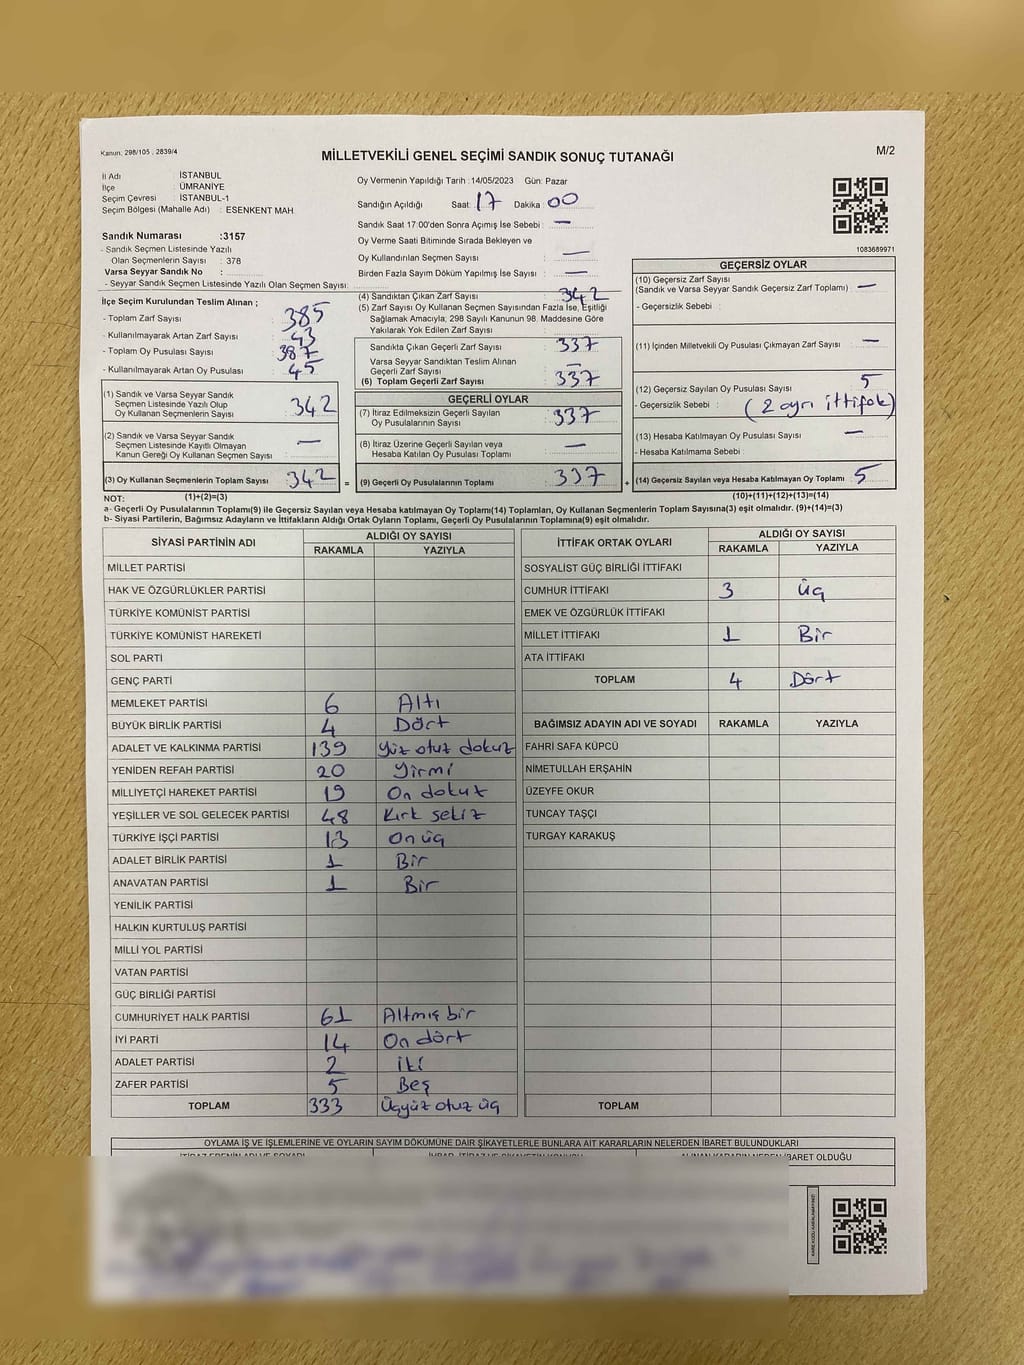 Kanun: 298/105 , 2839/4
MİLLETVEKİLİ GENEL SEÇİMİ SANDIK SONUÇ TUTANAĞI
M/2
İl Adı : İSTANBUL
İlçe : ÜMRANİYE
Seçim Çevresi : İSTANBUL-1
Seçim Bölgesi (Mahalle Adı) : ESENKENT MAH.
Sandık Numarası :3157
- Sandık Seçmen Listesinde Yazılı
Olan Seçmenlerin Sayısı : 378
Varsa Seyyar Sandık No :
- Seyyar Sandık Seçmen Listesinde Yazılı Olan Seçmen Sayısı:
Oy Vermenin Yapıldığı Tarih :14/05/2023 Gün: Pazar
Sandığın Açıldığı Saat: 17 Dakika: 00
Sandık Saat 17:00'den Sonra Açımış İse Sebebi : —
Oy Verme Saati Bitiminde Sırada Bekleyen ve
Oy Kullandırılan Seçmen Sayısı : —
Birden Fazla Sayım Döküm Yapılmış İse Sayısı : —
1083689971
İlçe Seçim Kurulundan Teslim Alınan ;
- Toplam Zarf Sayısı : 385
- Kullanılmayarak Artan Zarf Sayısı : 43
- Toplam Oy Pusulası Sayısı : 387
- Kullanılmayarak Artan Oy Pusulası : 45
(1) Sandık ve Varsa Seyyar Sandık
Seçmen Listesinde Yazılı Olup
Oy Kullanan Seçmenlerin Sayısı : 342
(2) Sandık ve Varsa Seyyar Sandık
Seçmen Listesinde Kayıtlı Olmayan
Kanun Gereği Oy Kullanan Seçmen Sayısı : —
(3) Oy Kullanan Seçmenlerin Toplam Sayısı : 342 =
(4) Sandıktan Çıkan Zarf Sayısı : 342
(5) Zarf Sayısı Oy Kullanan Seçmen Sayısından Fazla İse, Eşitliği
Sağlamak Amacıyla; 298 Sayılı Kanunun 98. Maddesine Göre
Yakılarak Yok Edilen Zarf Sayısı :
Sandıkta Çıkan Geçerli Zarf Sayısı : 337
Varsa Seyyar Sandıktan Teslim Alınan
Geçerli Zarf Sayısı : —
(6) Toplam Geçerli Zarf Sayısı : 337
GEÇERLİ OYLAR
(7) İtiraz Edilmeksizin Geçerli Sayılan
Oy Pusulalarının Sayısı : 337
(8) İtiraz Üzerine Geçerli Sayılan veya
Hesaba Katılan Oy Pusulası Toplamı : —
(9) Geçerli Oy Pusulalarının Toplamı : 337 +
GEÇERSİZ OYLAR
(10) Geçersiz Zarf Sayısı
(Sandık ve Varsa Seyyar Sandık Geçersiz Zarf Toplamı) : —
- Geçersizlik Sebebi :
(11) İçinden Milletvekili Oy Pusulası Çıkmayan Zarf Sayısı : —
(12) Geçersiz Sayılan Oy Pusulası Sayısı : 5
- Geçersizlik Sebebi : (2 ayrı ittifak)
(13) Hesaba Katılmayan Oy Pusulası Sayısı : —
- Hesaba Katılmama Sebebi :
(14) Geçersiz Sayılan veya Hesaba Katılmayan Oy Toplamı : 5
NOT: (1)+(2)=(3) (10)+(11)+(12)+(13)=(14)
a- Geçerli Oy Pusulalarının Toplamı(9) ile Geçersiz Sayılan veya Hesaba katılmayan Oy Toplamı(14) Toplamları, Oy Kullanan Seçmenlerin Toplam Sayısına(3) eşit olmalıdır. (9)+(14)=(3)
b- Siyasi Partilerin, Bağımsız Adayların ve İttifakların Aldığı Ortak Oyların Toplamı, Geçerli Oy Pusulalarının Toplamına(9) eşit olmalıdır.
SİYASİ PARTİNİN ADI ALDIĞI OY SAYISI
RAKAMLA YAZIYLA
MİLLET PARTİSİ
HAK VE ÖZGÜRLÜKLER PARTİSİ
TÜRKİYE KOMÜNİST PARTİSİ
TÜRKİYE KOMÜNİST HAREKETİ
SOL PARTİ
GENÇ PARTİ
MEMLEKET PARTİSİ 6 Altı
BÜYÜK BİRLİK PARTİSİ 4 Dört
ADALET VE KALKINMA PARTİSİ 139 Yüz otuz dokuz
YENİDEN REFAH PARTİSİ 20 Yirmi
MİLLİYETÇİ HAREKET PARTİSİ 19 On dokuz
YEŞİLLER VE SOL GELECEK PARTİSİ 48 Kırk sekiz
TÜRKİYE İŞÇİ PARTİSİ 13 On üç
ADALET BİRLİK PARTİSİ 1 Bir
ANAVATAN PARTİSİ 1 Bir
YENİLİK PARTİSİ
HALKIN KURTULUŞ PARTİSİ
MİLLİ YOL PARTİSİ
VATAN PARTİSİ
GÜÇ BİRLİĞİ PARTİSİ
CUMHURİYET HALK PARTİSİ 61 Altmış bir
İYİ PARTİ 14 On dört
ADALET PARTİSİ 2 iki
ZAFER PARTİSİ 5 Beş
TOPLAM 333 Üçyüz otuz üç
İTTİFAK ORTAK OYLARI ALDIĞI OY SAYISI
RAKAMLA YAZIYLA
SOSYALİST GÜÇ BİRLİĞİ İTTİFAKI
CUMHUR İTTİFAKI 3 Üç
EMEK VE ÖZGÜRLÜK İTTİFAKI
MİLLET İTTİFAKI 1 Bir
ATA İTTİFAKI
TOPLAM 4 Dört
BAĞIMSIZ ADAYIN ADI VE SOYADI RAKAMLA YAZIYLA
FAHRİ SAFA KÜPCÜ
NİMETULLAH ERŞAHİN
ÜZEYFE OKUR
TUNCAY TAŞÇI
TURGAY KARAKUŞ
TOPLAM
OYLAMA İŞ VE İŞLEMLERİNE VE OYLARIN SAYIM DÖKÜMÜNE DAİR ŞİKAYETLERLE BUNLARA AİT KARARLARIN NELERDEN İBARET BULUNDUKLARI
İTİRAZ EDENİN ADI VE SOYADI İHBAR, İTİRAZ VE ŞİKAYETİN KONUSU ALINAN KARARIN NEDEN İBARET OLDUĞU